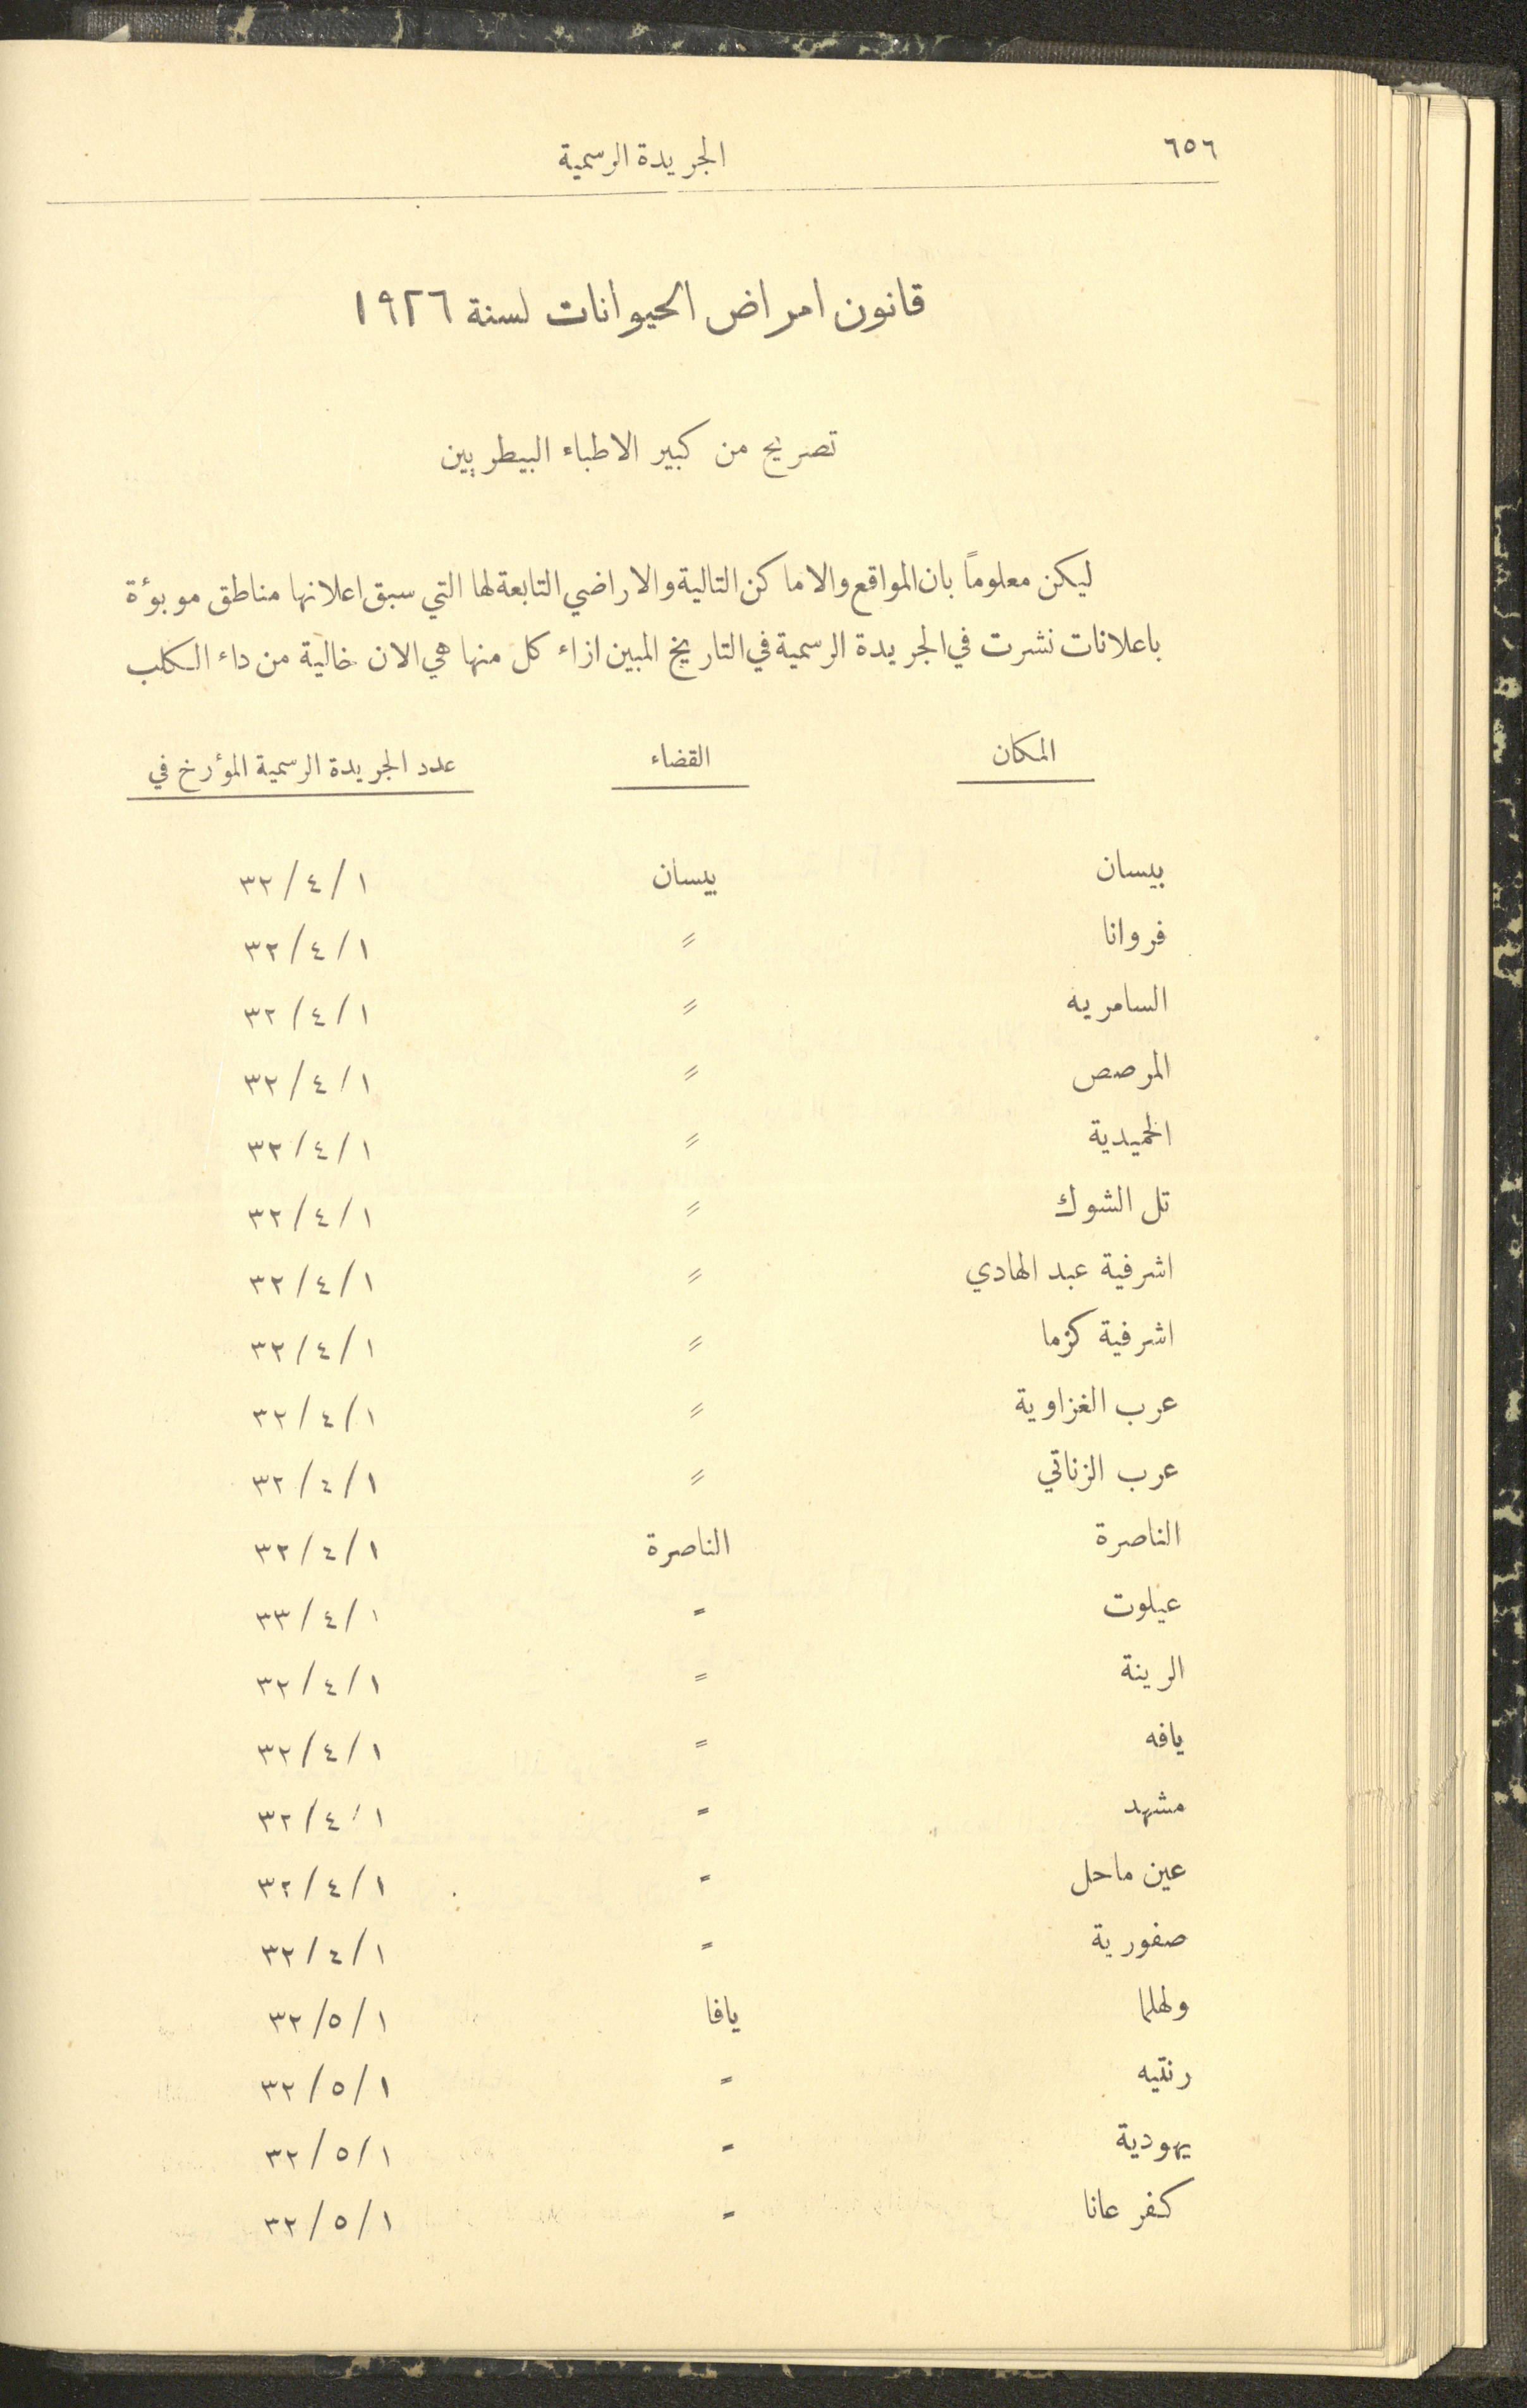 ٦٥٦
الجريدة الرسمية
قانون امراض الحيوانات لسنة ١٩٢٦
تصريح من كبير الاطباء البيطريين
ليكن معلوماً بان المواقع والاماكن التالية والاراضي التابعة لها التي سبق اعلانها مناطق موبوؤة
باعلانات نشرت في الجريدة الرسمية في التاريخ المبين ازاء كل منها هي الان خالية من داء الكلب
المكان القضاء عدد الجريدة الرسمية المؤرخ في
بيسان بيسان ١/٤/٣٢
فروانا = ١/٤/٣٢
السامريه = ١/٤/٣٢
المرصص = ١/٤/٣٢
الحميدية = ١/٤/٣٢
تل الشوك = ١/٤/٣٢
اشرفية عبد الهادي = ١/٤/٣٢
اشرفية كزما = ١/٤/٣٢
عرب الغزاوية = ١/٤/٣٢
عرب الزناتي = ١/٤/٣٢
الناصرة الناصرة ١/٤/٣٢
عيلوت = ١/٤/٣٣
الرينة = ١/٤/٣٢
يافه = ١/٤/٣٢
مشهد = ١/٤/٣٢
عين ماحل = ١/٤/٣٢
صفورية = ١/٤/٣٢
ولهلما يافا ١/٥/٣٢
رنتيه = ١/٥/٣٢
يهودية = ١/٥/٣٢
كفر عانا = ١/٥/٣٢